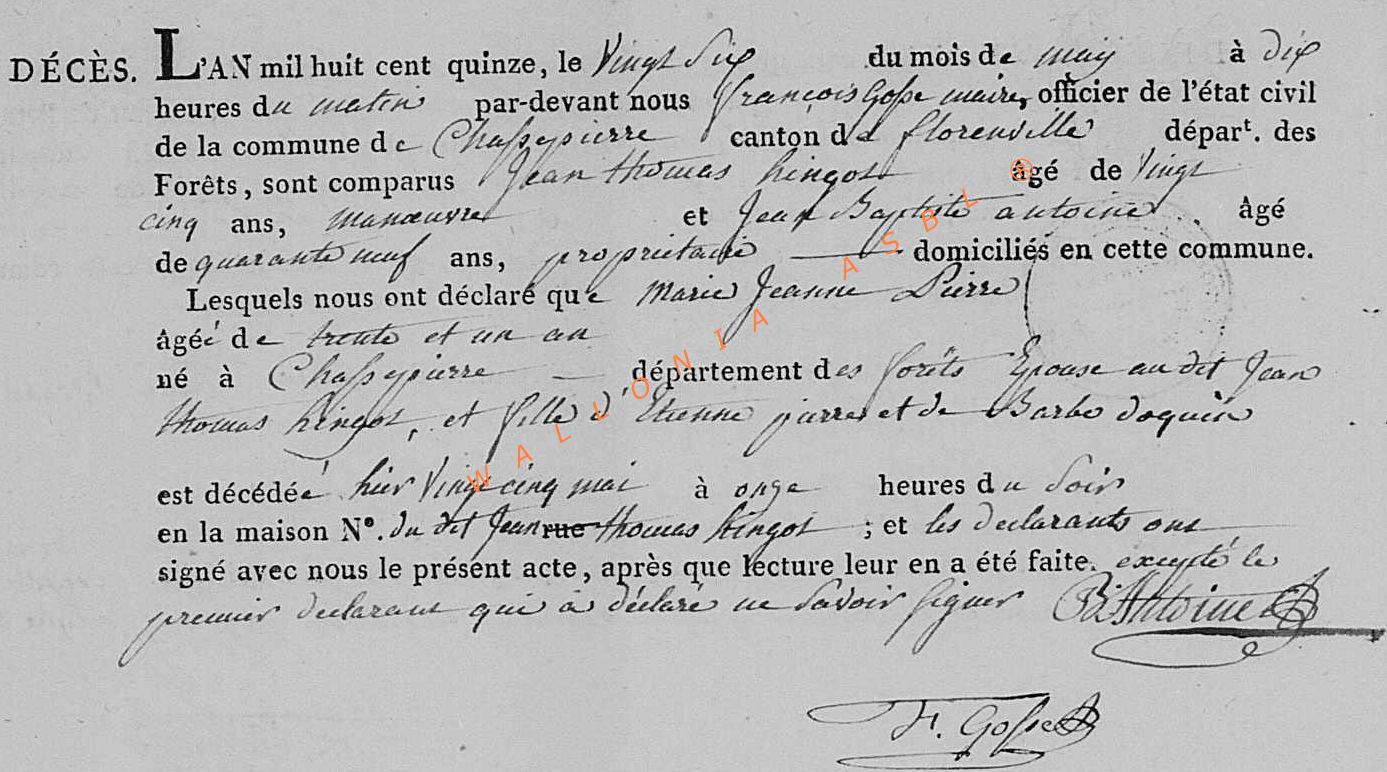 DÉCÈS. L'AN mil huit cent quinze, le Vingt Six du mois de maij à dix
heures du matin par-devant nous françois Gosse maire, officier de l'état civil
de la commune de Chassepierre canton de florenville départ. des
Forêts, sont comparus Jean thomas hingot âgé de Vingt
cinq ans, manœuvre et Jean Baptiste antoine âgé
de quarante neuf ans, propriétaire domiciliés en cette commune.
Lesquels nous ont déclaré que Marie Jeanne Pierre
âgée de trente et un an
né à Chassepierre département des forêts Epouse au dit Jean
thomas hingot, et fille d'Etienne pierre et de Barbe doquin
est décédée hier Vingt cinq mai à onze heures du Soir
en la maison N°. du dit Jean rue thomas hingot ; et les declarants ont
signé avec nous le présent acte, après que lecture leur en a été faite. excepté le
premier declarant qui a déclaré ne Savoir Signer B. Antoine
F. Gosse
WALLONIA ASBL @